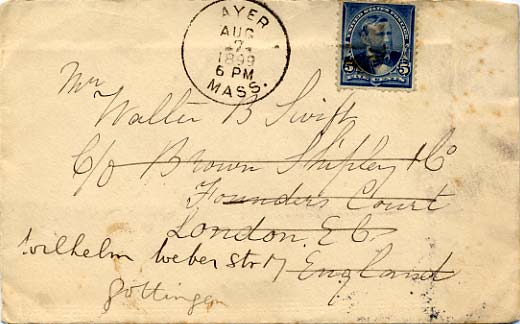 AYER
AUG
1899
6 PM
MASS.
UNITED STATES POSTAGE
5 5
FIVE CENTS
Mr
Walter B Swift
C/o Brown Shipley & Co
Founders Court
London. E.C.
Wilhelm Weber Str 17 England
Göttingen